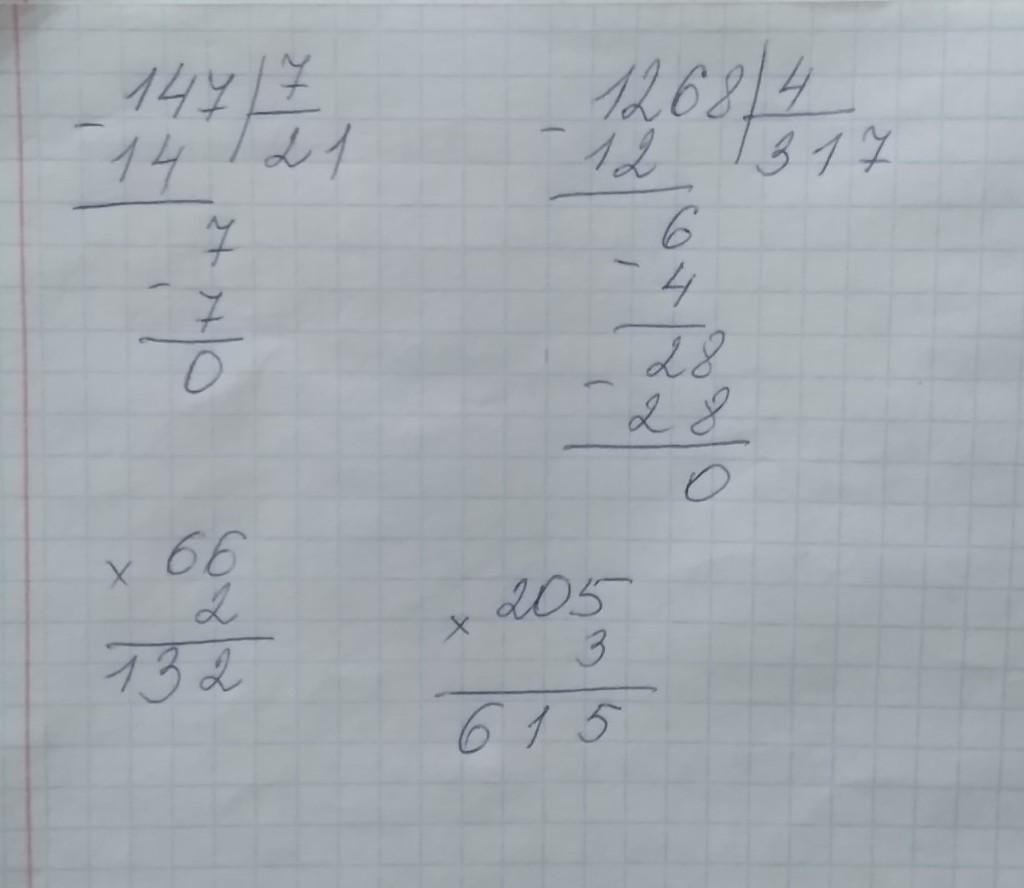 147 7
- 14 21
7
- 7
0
1268 4
- 12 317
6
- 4
28
- 28
0
× 66
2
132
× 205
3
615